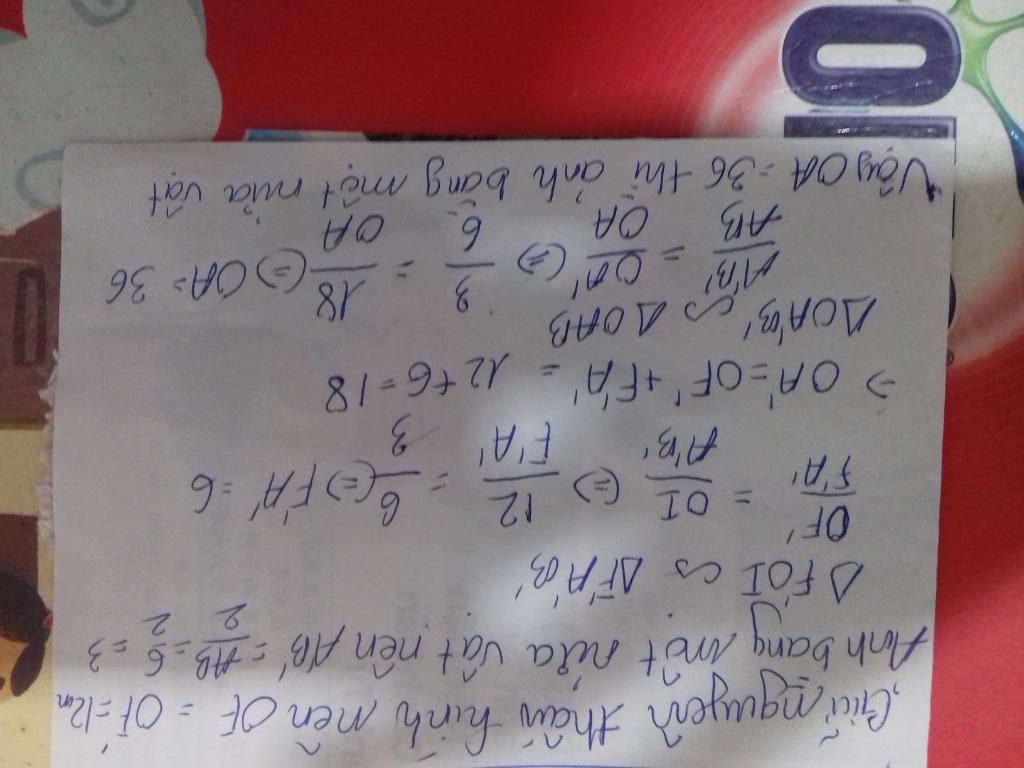 Giữ nguyên thấu kính nên OF = OF' = 12cm
Ảnh bằng một nửa vật nên A'B' = AB/2 = 6/2 = 3
Δ F'OI ∽ ΔF'A'B'
OF'/F'A' = OI/A'B' (=) 12/F'A' = 6/3 (=) F'A' = 6
=> OA' = OF' + F'A' = 12 + 6 = 18
ΔOA'B' ∽ ΔOAB
A'B'/AB = OA'/OA (=) 3/6 = 18/OA (=) OA = 36
Vậy OA = 36 thì ảnh bằng một nửa vật